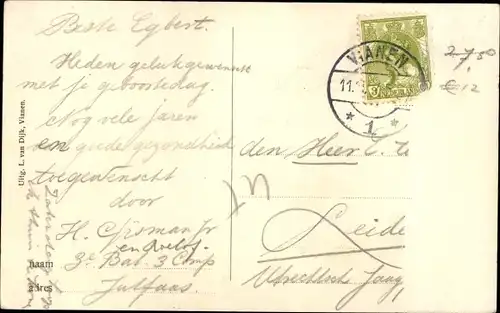 Beste Egbert.
Heden gelukgewenscht
met je geboortedag.
Nog vele jaren
en goede gezondheid
toegewenscht
door
H. Jr
en Roelof.
3e Bat. 3 Comp
Jutfaas
naam
adres
Uitg. L. van Dijk, Vianen.
VIANEN
11.
1
NEDERLAND
2-7,50
€ 12
den Heer E.
Leide
Utrechtsch Jaag